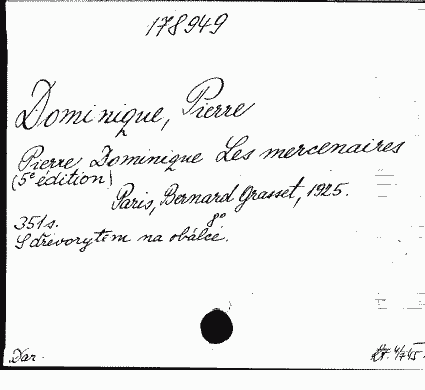 178949
Dominique, Pierre
Pierre Dominique Les mercenaires
(5e édition)
Paris, Bernard Grasset, 1925.
8°
351s.
S dřevorytem na obálce.
Dar.
4/745.